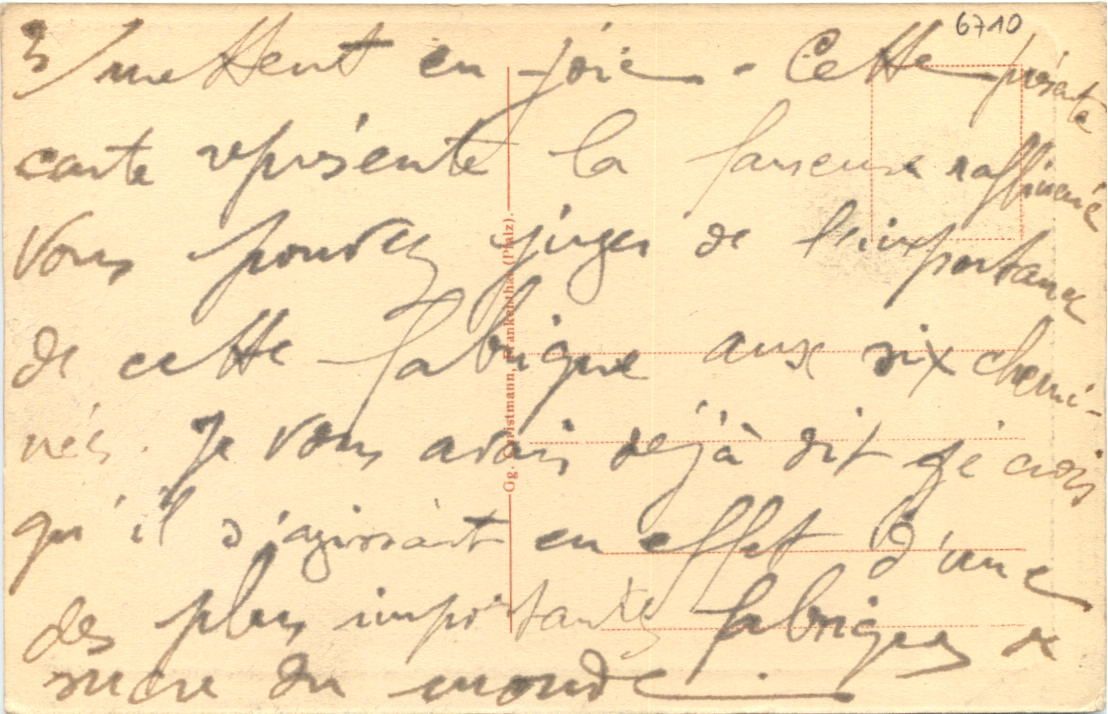 6710
3/ mettent en joie. - Cette présente
carte représente la fameuse raffinerie
Vous pouvez juger de l'importance
de cette fabrique aux six chemi-
nés. Je vous avais déjà dit je crois
qu'il s'agissait en effet d'une
des plus importantes fabriques de
sucre du monde.
Og. Christmann, Frankenthal (Pfalz).